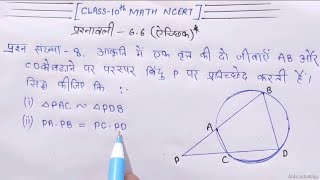 [CLASS-10th MATH NCERT]
प्रश्नावली - 6.6 (ऐच्छिक)*
प्रश्न संख्या - 8. आकृति में एक वृत्त की दो जीवाएँ AB और
CD बढ़ाने पर परस्पर बिंदु P पर प्रतिच्छेद करती हैं।
सिद्ध कीजिए कि :
(i) △PAC ~ △PDB
(ii) PA·PB = PC·PD
B
A
P
C
D